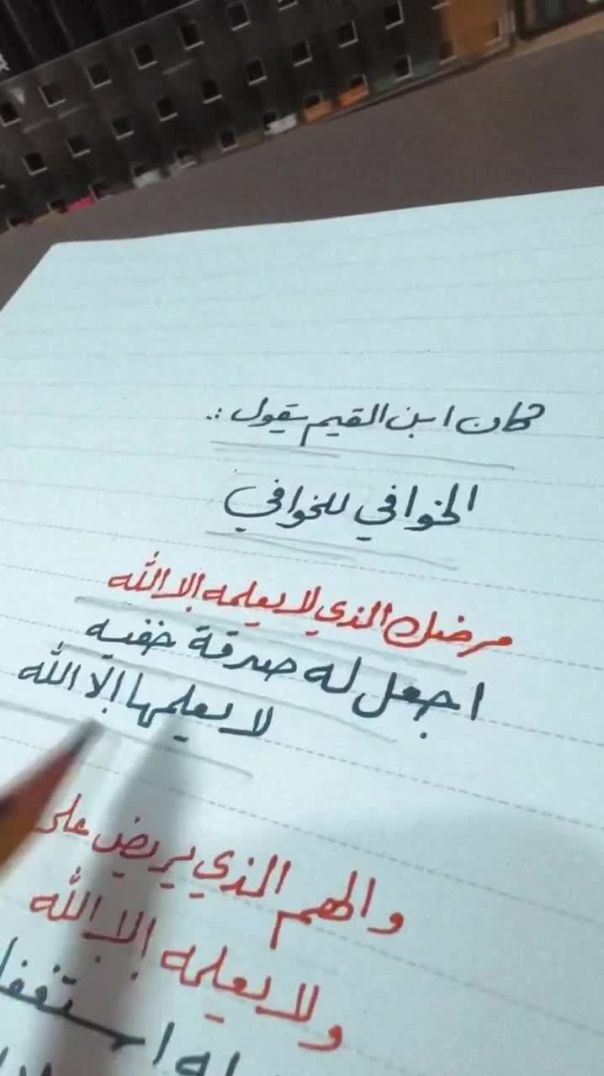 كان ابن القيم يقول :.
الخوافي للخوافي
مرضك الذي لا يعلمه إلا الله
اجعل له صدقة خفيه
لا يعلمها إلّا الله
والهم الذي يربض على
ولا يعلمه إلا الله
له